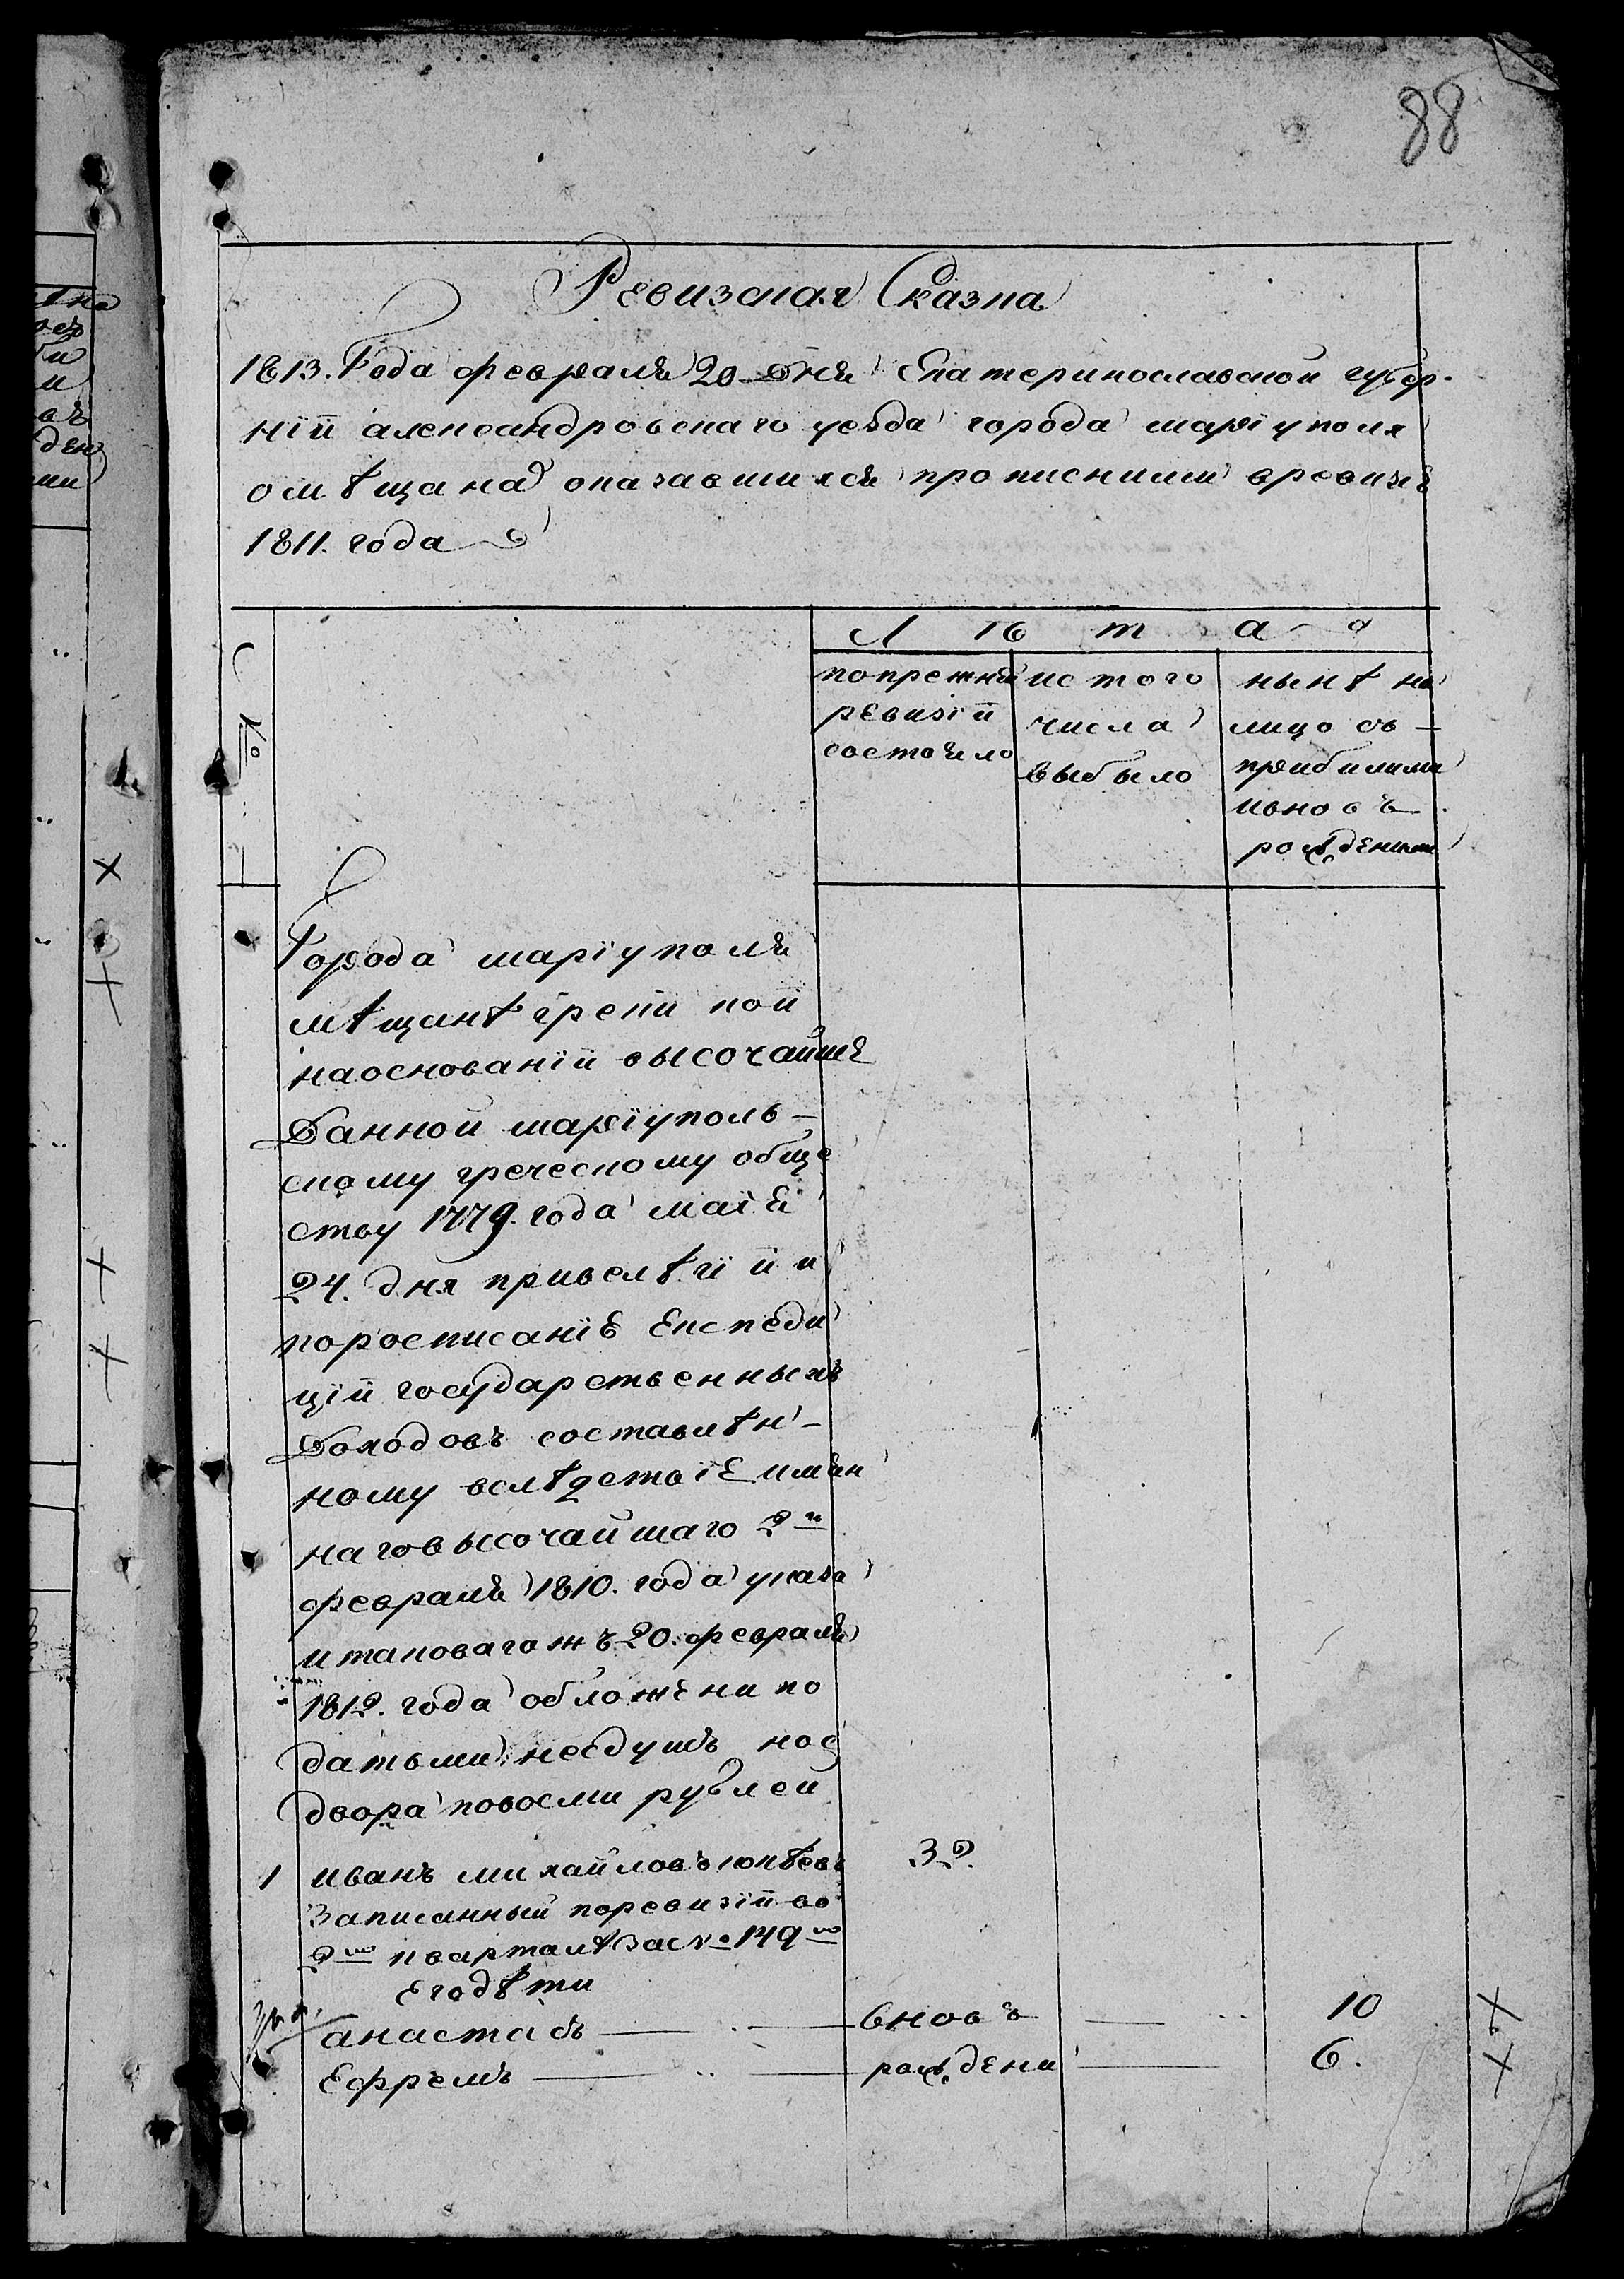 88
Ревизская Сказка
1813. Года февраля 20 дня Екатеринославской губер-
нїи александровскаго уезда города марїуполя
омѣщанаӽ оказавшихся прописними вревизїе
1811. года
Лѣта
№
попрежней
ревизїи
состояло
ис того
числа
выбыло
нынѣ на
лицо съ
прибилими
ивновъ
рожденими
Города марїуполя
мѣщанѣ греки кои
наоснованїи высочайше
Данной марїуполь-
скому греческому обще
ству 1779. года маїя
24. дня привелѣгїи и
поросписанїе Експеди
цїи государственныхъ
Доходовъ составлѣн-
ному велѣдствїе имян
наговысочайшаго 2го
февраля 1810. года указа
итаковагожъ 20. февраля
1812. года обложени по
датьми несдушъ нос
двора повосми рублеи
1 иванъ михайловъ 32.
Записанный поревизїи во
2мъ кварталѣ зас №149мъ
Егодѣти
анастасъ вновъ 10
Ефремъ рождени 6.